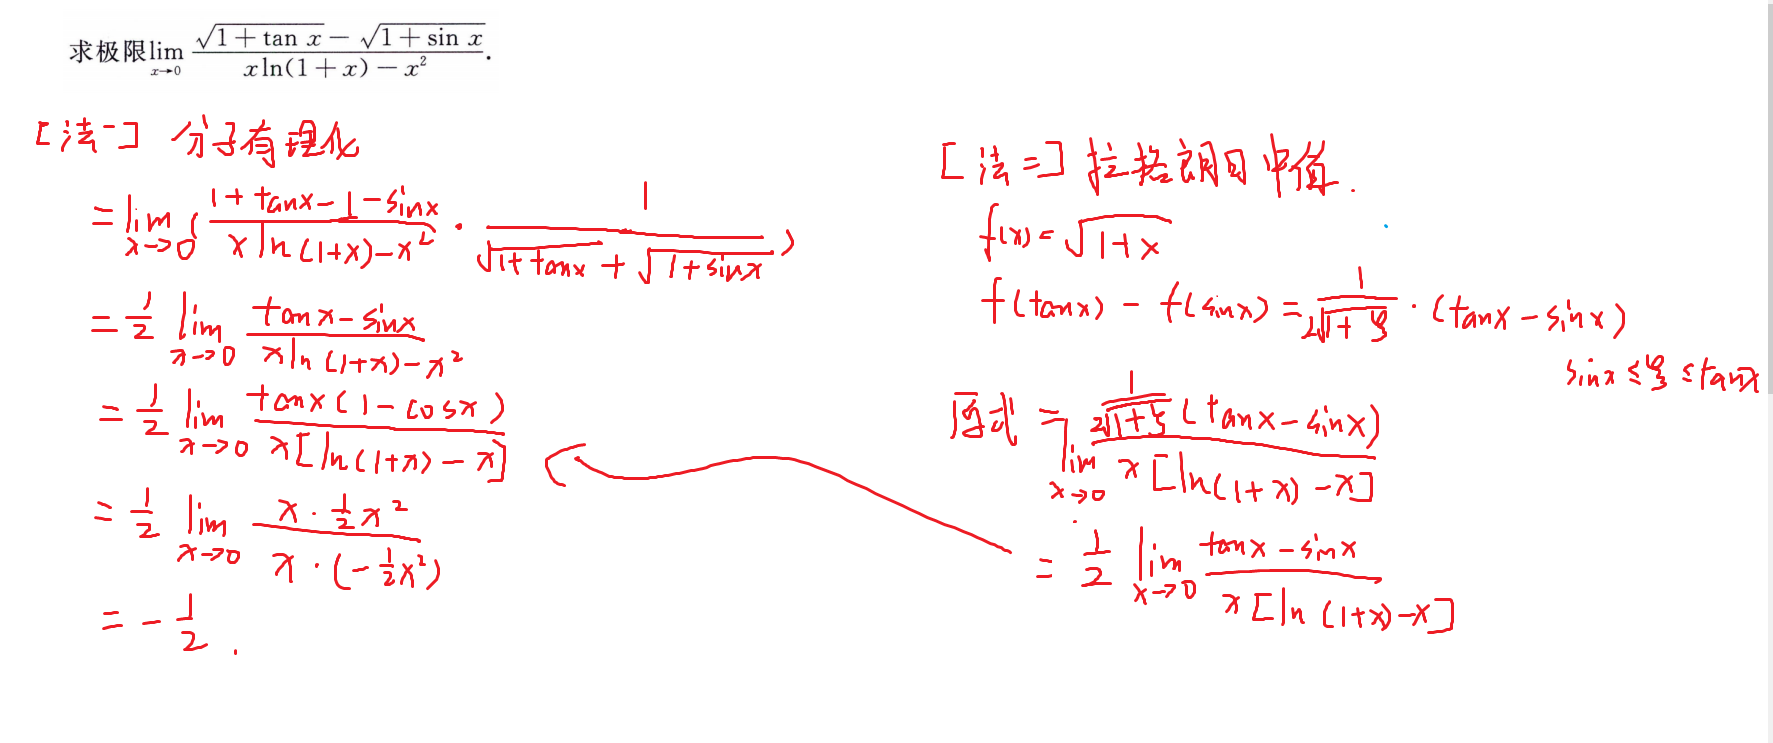 求极限lim_{x→0} (√(1+tan x) − √(1+sin x)) / (xln(1+x) − x²).
[法一] 分子有理化
= lim_{x→0} ( (1+tanx−1−sinx) / (x ln(1+x)−x²) · 1 / (√(1+tanx) + √(1+sinx)) )
= 1/2 lim_{x→0} (tanx−sinx) / (xln(1+x)−x²)
= 1/2 lim_{x→0} tanx(1−cosx) / (x[ln(1+x)−x])
= 1/2 lim_{x→0} (x·1/2x²) / (x·(−1/2x²))
= −1/2.
[法二] 拉格朗日中值.
f(x)=√(1+x)
f(tanx) − f(sinx) = 1/(2√(1+ξ)) · (tanx−sinx)
sinx ≤ ξ ≤ tanx
原式 = lim_{x→0} (1/(2√(1+ξ)) (tanx−sinx)) / (x[ln(1+x)−x])
= 1/2 lim_{x→0} (tanx−sinx) / (x[ln(1+x)−x])